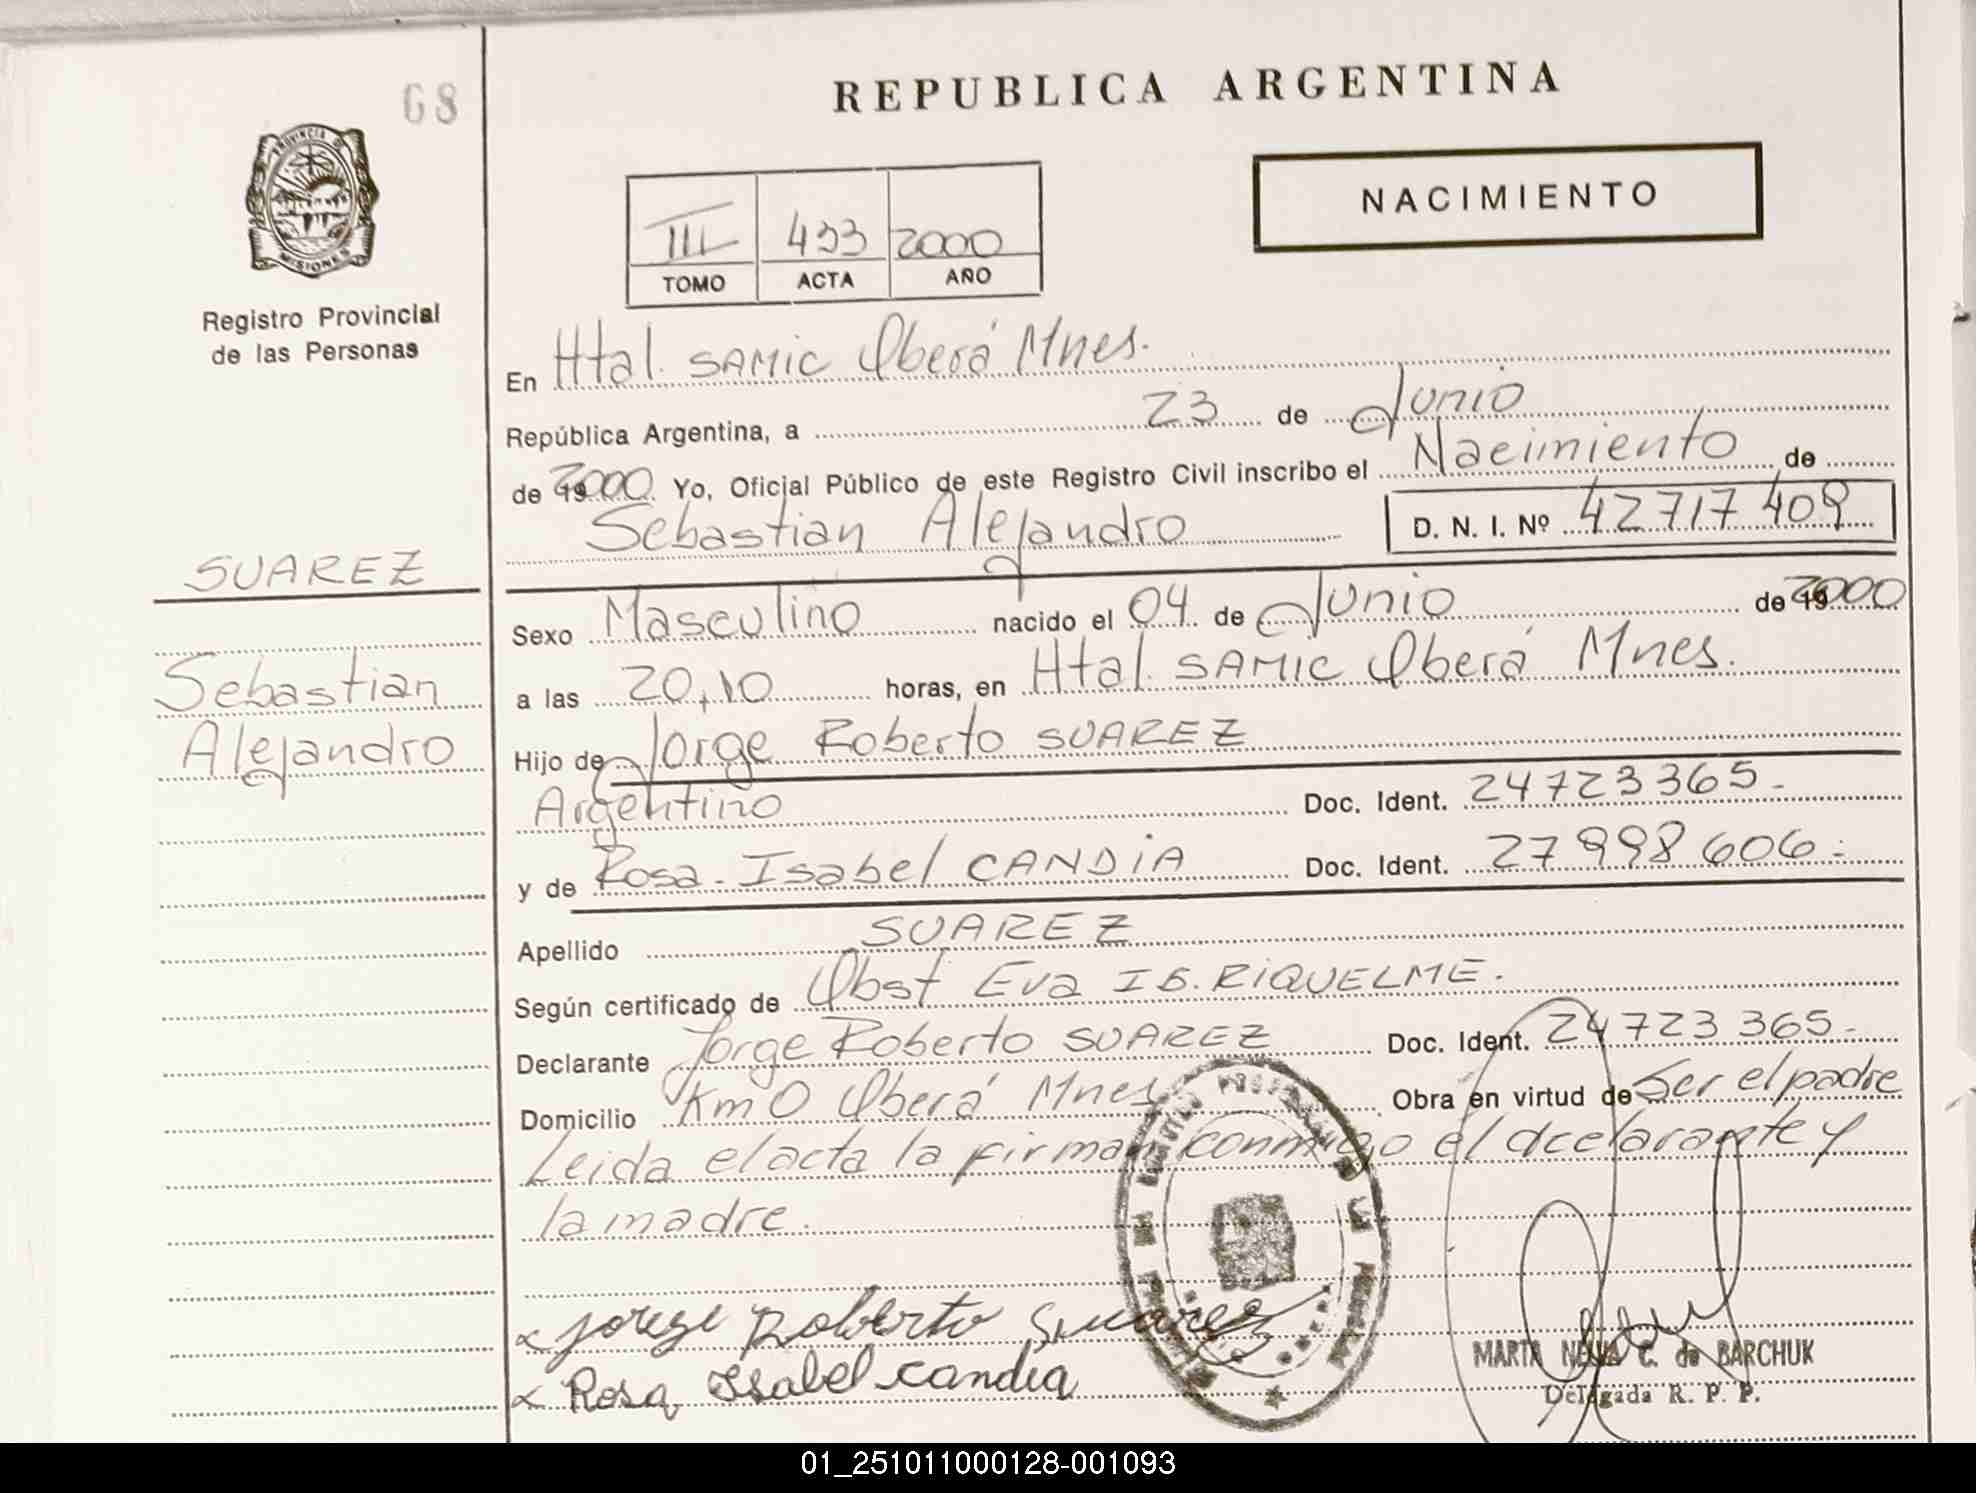 68
REPUBLICA ARGENTINA
NACIMIENTO
III 433 2000
TOMO ACTA AÑO
PROVINCIA DE
MISIONES
Registro Provincial
de las Personas
En Htal. SAMIC Oberá Mnes.
República Argentina, a 23 de Junio
de 2000 Yo, Oficial Público de este Registro Civil inscribo el Nacimiento de
Sebastian Alejandro D. N. I. Nº 42717409
SUAREZ
Sebastian
Alejandro
Sexo Masculino nacido el 04 de Junio de 2000
a las 20,10 horas, en Htal. SAMIC Oberá Mnes.
Hijo de Jorge Roberto SUAREZ
Argentino Doc. Ident. 24723365.-
y de Rosa - Isabel CANDIA Doc. Ident. 27998606.-
Apellido SUAREZ
Según certificado de Obst Eva I B. RIQUELME.
Declarante Jorge Roberto SUAREZ Doc. Ident. 24723365.-
Domicilio Km 0 Oberá Mnes Obra en virtud de Ser el padre
Leida el acta la firman conmigo el dcelarante y
la madre.
Jorge Roberto Suarez
Rosa Isabel Candia
MARTA C. de BARCHUK
Delegada R. P. P.
01_251011000128-001093